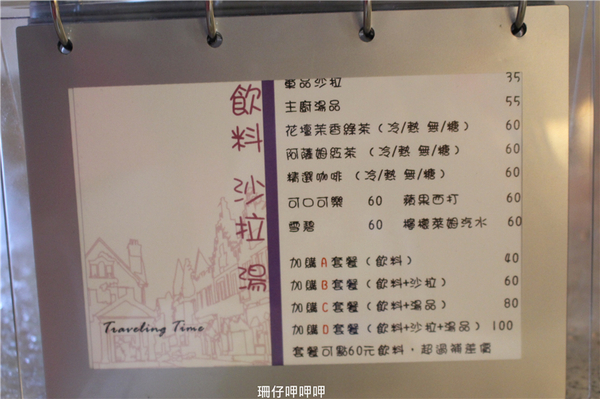 飲料 沙拉 湯
Traveling Time
單品沙拉 35
主廚湯品 55
花壇茉香綠茶(冷/熱 無/糖) 60
阿薩姆紅茶(冷/熱 無/糖) 60
精選咖啡(冷/熱 無/糖) 60
可口可樂 60 蘋果西打 60
雪碧 60 檸檬萊姆汽水 60
加購A套餐(飲料) 40
加購B套餐(飲料+沙拉) 60
加購C套餐(飲料+湯品) 80
加購D套餐(飲料+沙拉+湯品) 100
套餐可點60元飲料,超過補差價
珊仔呷呷呷